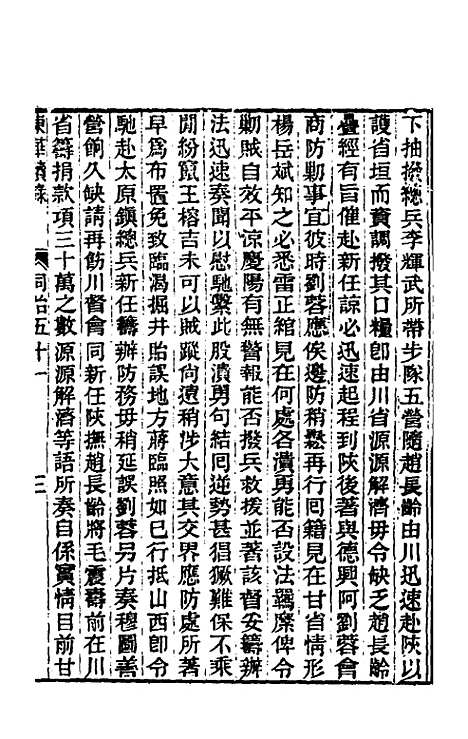 下抽撥總兵李輝武所帶步隊五營隨趙長齡由川迅速赴陝以
護省垣而資調撥其口糧卽由川省源源解濟毋令缺乏趙長齡
疊經有旨催赴新任諒必迅速起程到陝後著與德興阿劉蓉會
商防勦事宜彼時劉蓉應俟邊防稍鬆再行囘籍見在甘省情形
楊岳斌知之必悉雷正綰見在何處各潰勇能否設法羈縻俾令
勦賊自效平涼慶陽有無警報能否撥兵救援並著該督妥籌辦
法迅速奏聞以慰馳繫此股潰勇句結囘逆勢甚猖獗難保不乘
閒紛竄王榕吉未可以賊蹤尙遠稍涉大意其交界應防處所著
早爲布置免致臨渴掘井貽誤地方蔣臨照如已行抵山西卽令
馳赴太原鎭總兵新任籌辦防務毋稍延誤劉蓉另片奏穆圖善
營餉久缺請再飭川督會同新任陝撫趙長齡將毛震壽前在川
省籌捐款項三十萬之數源源解濟等語所奏自係實情目前甘
東華續錄 同治五十一 三